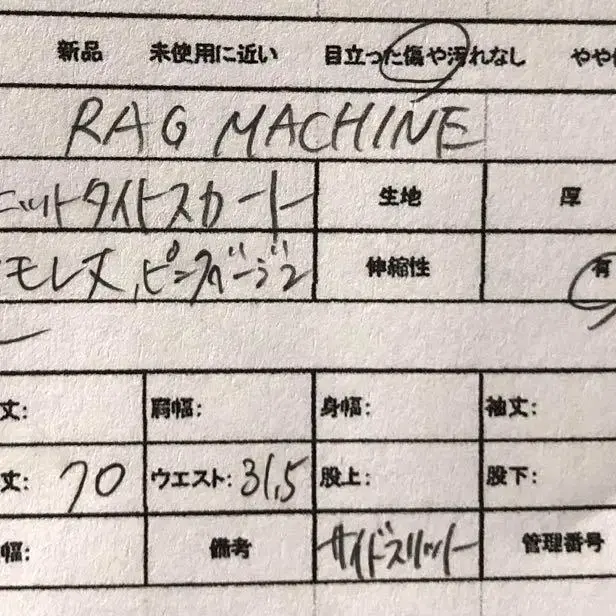 新品 未使用に近い 目立った傷や汚れなし やや
RAG MACHINE
ニットタイトスカート 生地 厚
モレ丈、ピンクベージュ 伸縮性 有
丈: 肩幅: 身幅: 袖丈:
丈: 70 ウエスト: 31,5 股上: 股下:
幅: 備考 サイドスリット 管理番号